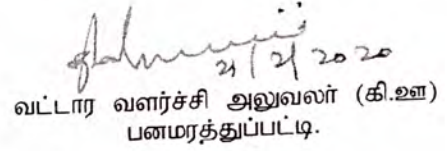 21/2/2020
வட்டார வளர்ச்சி அலுவலர் (கி.ஊ)
பனமரத்துப்பட்டி.